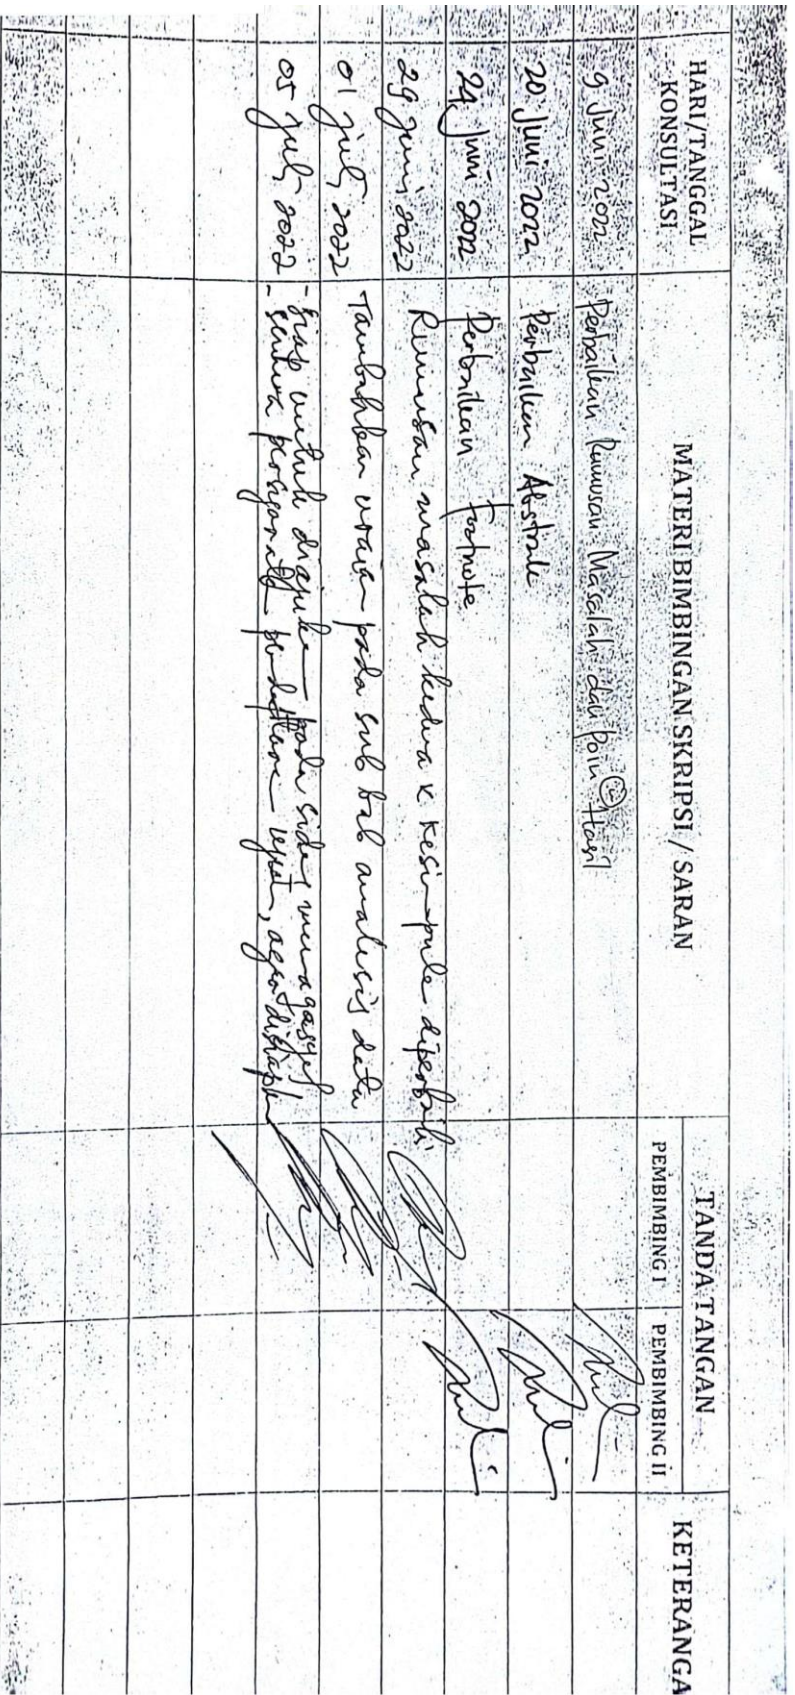 HARI/TANGGAL KONSULTASI
MATERI BIMBINGAN SKRIPSI / SARAN
TANDA TANGAN
PEMBIMBING I
PEMBIMBING II
KETERANGA
9 Juni 2022 Perbaikan Rumusan Masalah dan Poin Hasil
20 Juni 2022 Perbaikan Abstrak
24 Juni 2022 Perbaikan Footnote
29 Juni 2022 Rumusan masalah kedua & kesimpulan diperbaiki
01 Juli 2022 Tambahkan uraian pada sub bab analisis data
05 Juli 2022 - Siap untuk diajukan pada sidang munaqasyah
- semua pendaftaran